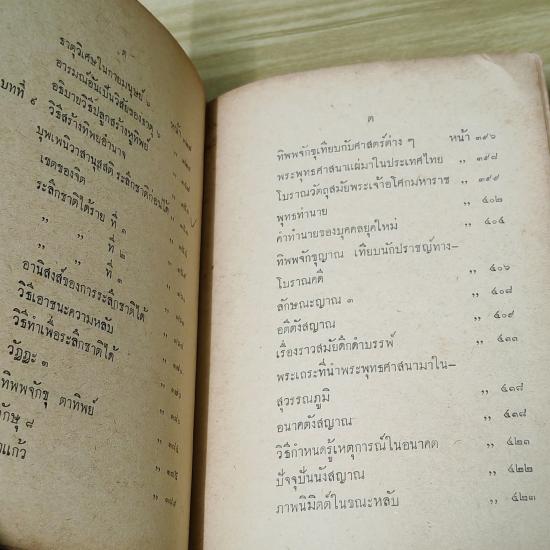 ฅ
ธาตุวิเศษในกายมนุษย์ ๖
อารมณ์อันเป็นวิสัยของธาตุ ๖
อธิบายวิธีปลูกสร้างหูทิพย์
บทที่ ๙ วิธีสร้างทิพยอำนาจ หน้า
บุพเพนิวาสานุสสติ ระลึกชาติก่อนได้
เขตของจิต
ระลึกชาติได้ราย ที่ ๑
,, ,, ที่ ๒
,, ,, ที่ ๓
อานิสงส์ของการระลึกชาติได้
วิธีเอาชนะความหลับ
วิธีทำเพื่อระลึกชาติได้
วัฏฏะ ๓
ทิพพจักขุ ตาทิพย์
จักษุ ๘
แก้ว
ต
ทิพพจักขุเทียบกับศาสตร์ต่าง ๆ หน้า ๓๙๖
พระพุทธศาสนาแผ่มาในประเทศไทย ,, ๓๙๘
โบราณวัตถุสมัยพระเจ้าอโศกมหาราช ,, ๓๙๙
พุทธทำนาย ,, ๔๐๒
คำทำนายของบุคคลยุคใหม่ ,, ๔๐๔
ทิพพจักขุญาณ เทียบนักปราชญ์ทาง-
โบราณคดี ,, ๔๐๖
ลักษณะญาณ ๓ ,, ๔๐๘
อตีตังสญาณ ,, ๔๐๙
เรื่องราวสมัยดึกดำบรรพ์ ,, ๔๑๑
พระเถระที่นำพระพุทธศาสนามาใน-
สุวรรณภูมิ ,, ๔๑๘
อนาคตังสญาณ ,, ๔๑๘
วิธีกำหนดรู้เหตุการณ์ในอนาคต ,, ๔๒๑
ปัจจุปปันนังสญาณ ,, ๔๒๒
ภาพนิมิตต์ในขณะหลับ ,, ๔๒๓